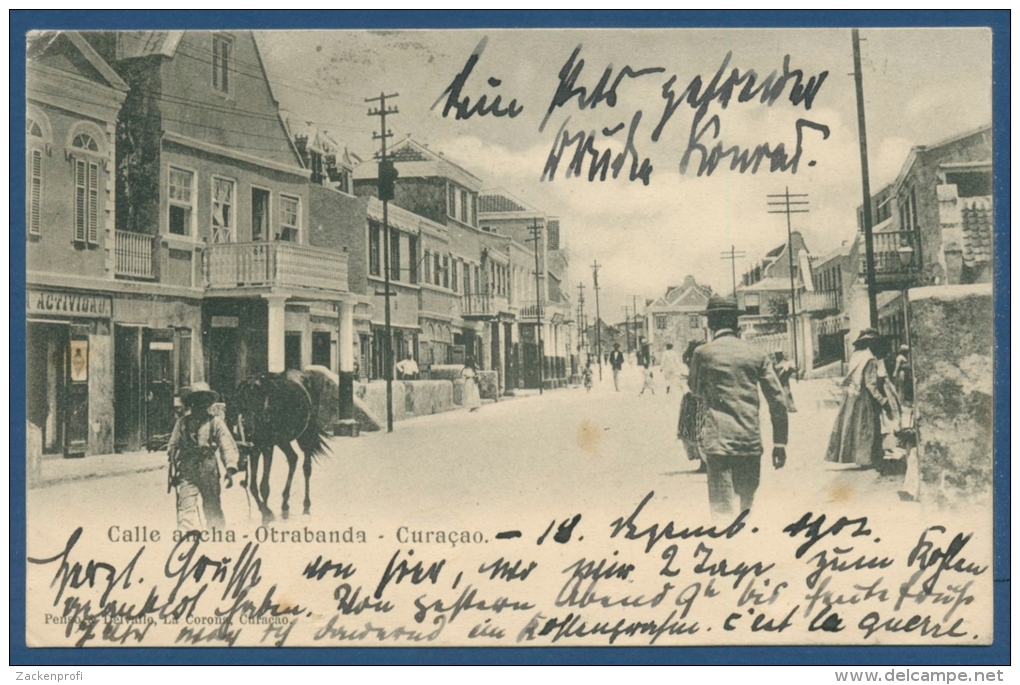 Dein stets gefreiter
Bruder Konrad.
ACTIVIDAD
Calle ancha - Otrabanda - Curaçao. – 18. Dezemb. 1902.
Herzl. Grüsse von hier, wo wir 2 Tage zum Kohlen
haben. Von gestern Abend 9h bis heute früh
Pensoy Delvalle, La Corona, Curaçao.
im Kohlenprahm. c'est la guerre.
Zackenprofi
www.delcampe.net